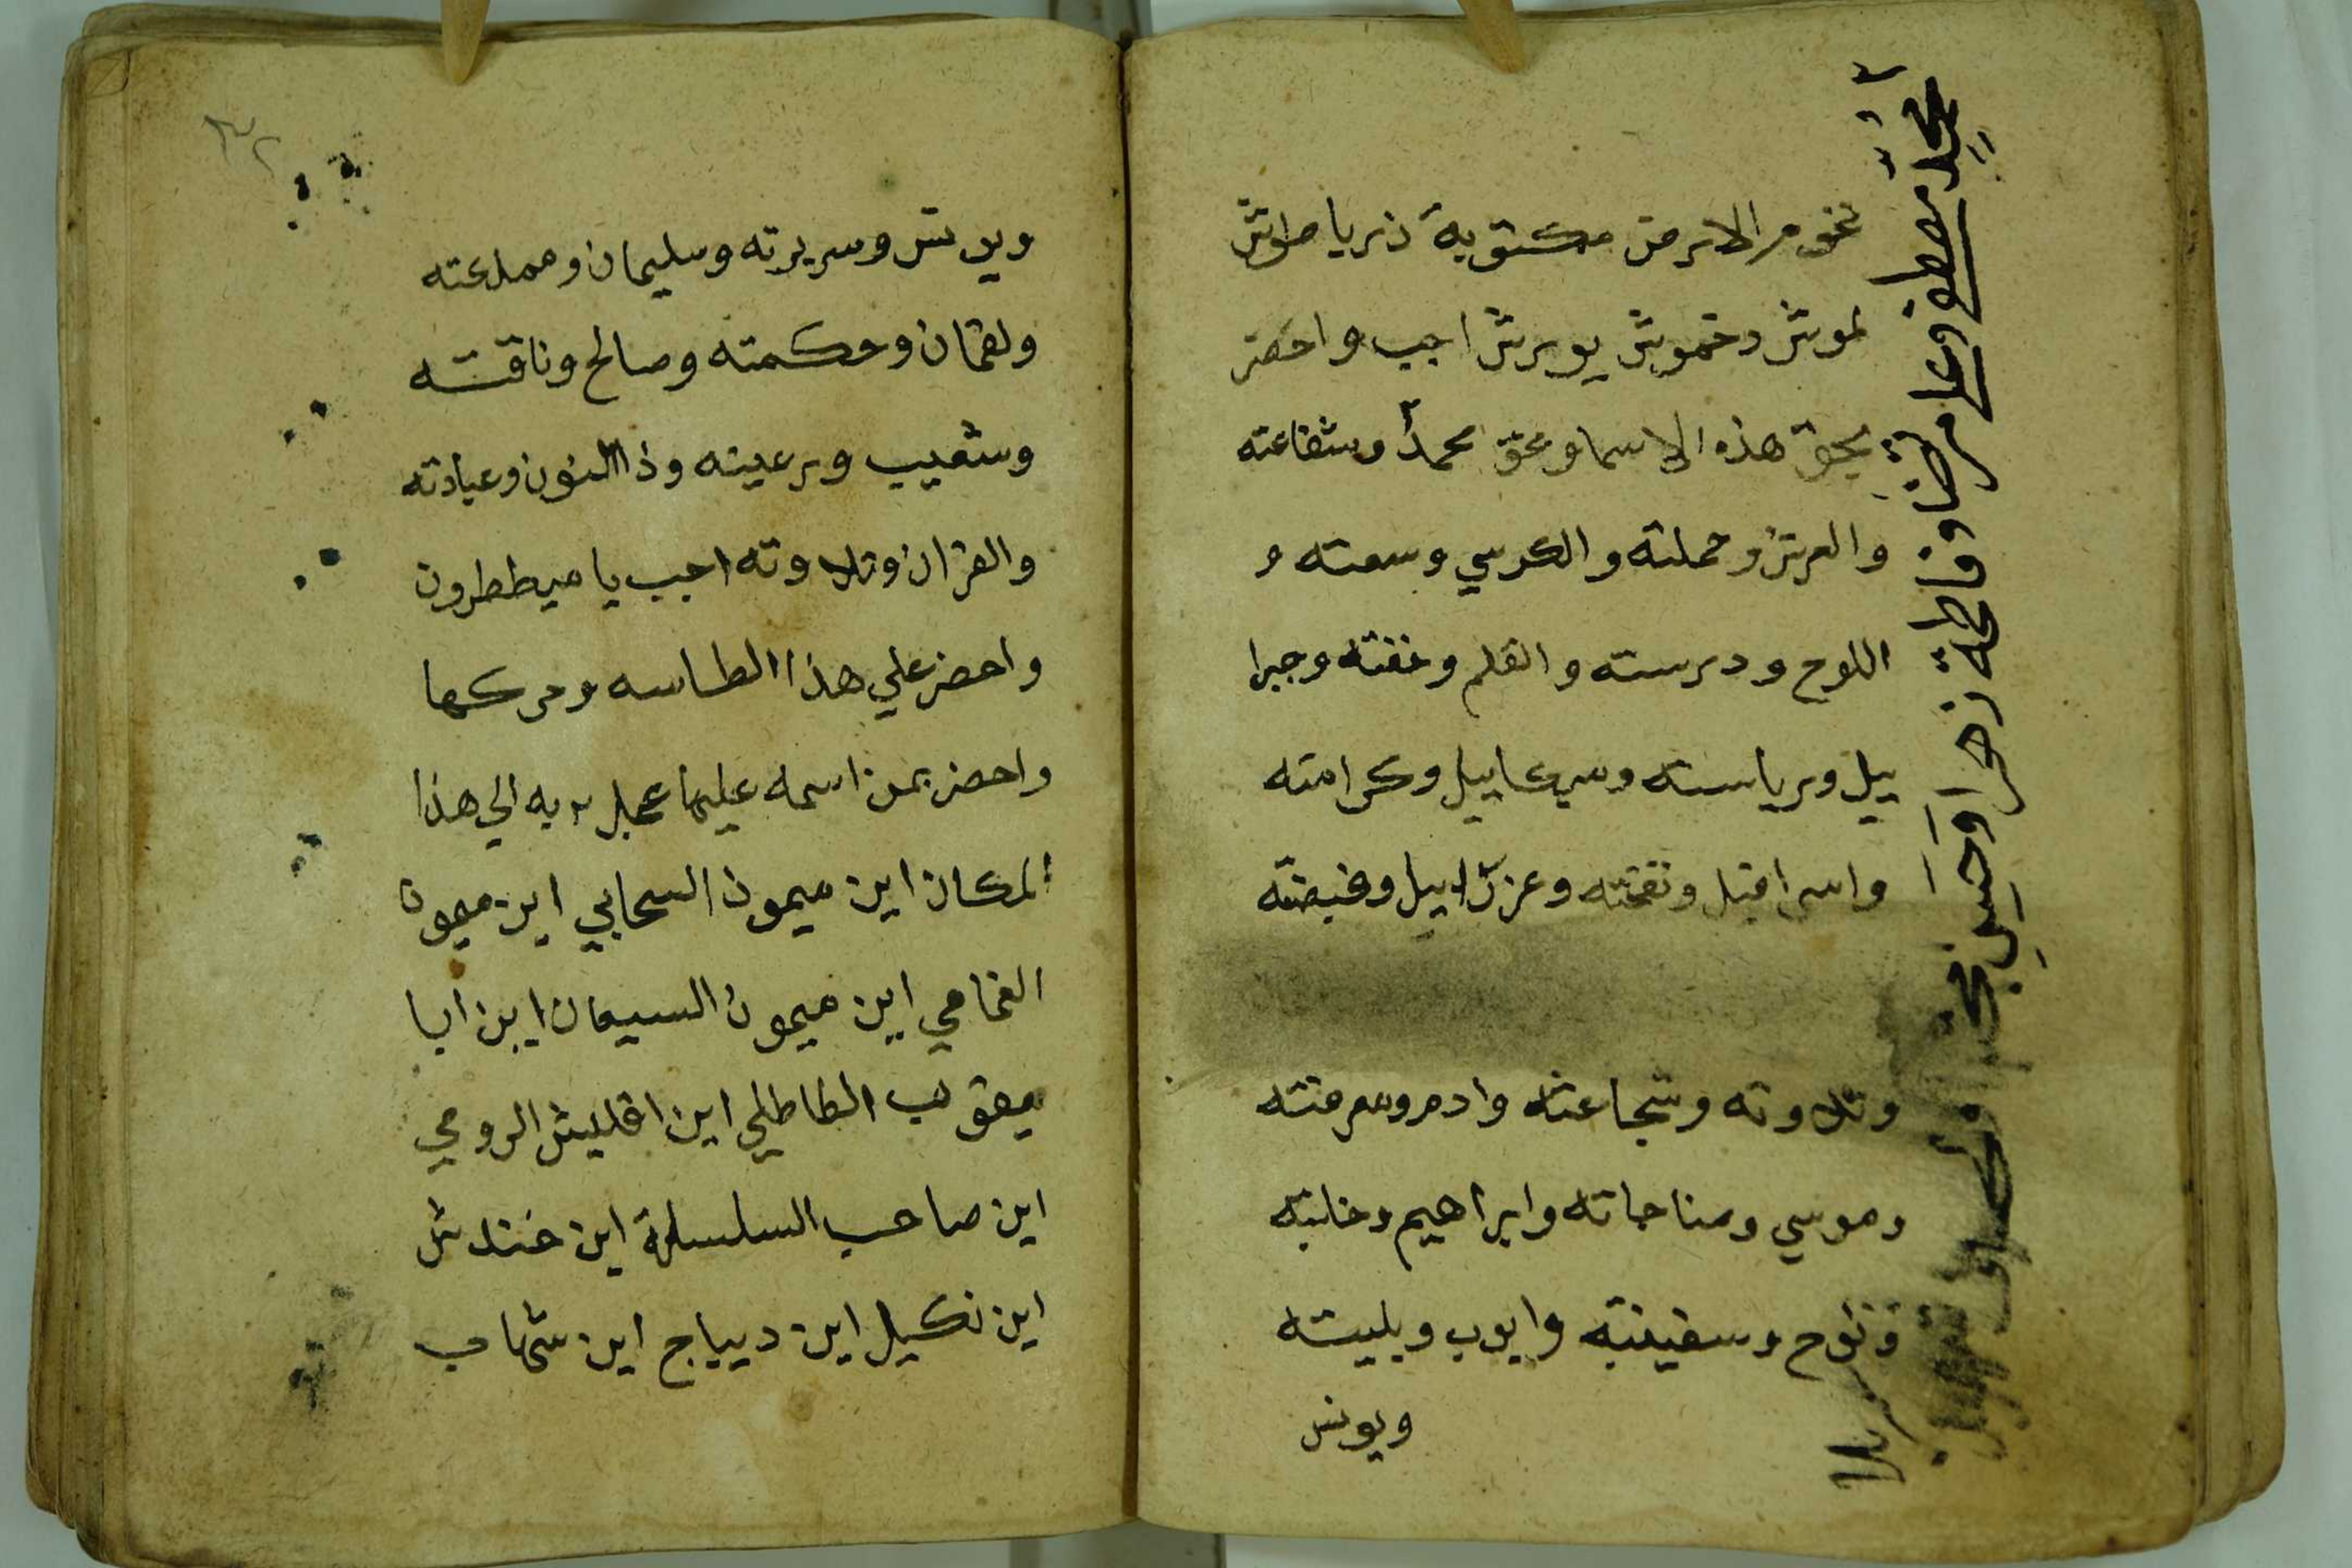 تخوم الارض مكتوبة ذريا طوش
لموش دخموش يورش اجب واحضر
بحق هذه الاسما وبحق محمد وشفاعته
والعرش وحملته والكرسي وسعته و
اللوح ودرسته والقلم وخفته وجبرا
ييل ورياسته وميكاييل وكرامته
واسرافيل ونفخته وعزراييل وقبضته
وتلاوته وشجاعته وادم ومعرفته
وموسي ومناجاته وابراهيم وخلته
ونوح وسفينته وايوب وبليته
ويونس
محمد مصطفى وعلي مرتضا وفاطمة زهرا وحسين
٣٢
ويونس وسريرته وسليمان ومملكته
ولقمان وحكمته وصالح وناقته
وشعيب ورعيته وذا النون وعبادته
والقران وتلاوته اجب يا ميططرون
واحضر علي هذا الطاسه وحركها
واحضر بمن اسمه عليها به الي هذا
المكان اين ميمون السحابي اين ميمون
الغمامي اين ميمون السيعان اين ابا
يعقوب الطاطلي اين اقليش الرومي
اين صاحب السلسلة اين خندش
اين نكيل اين ديباج اين شهاب